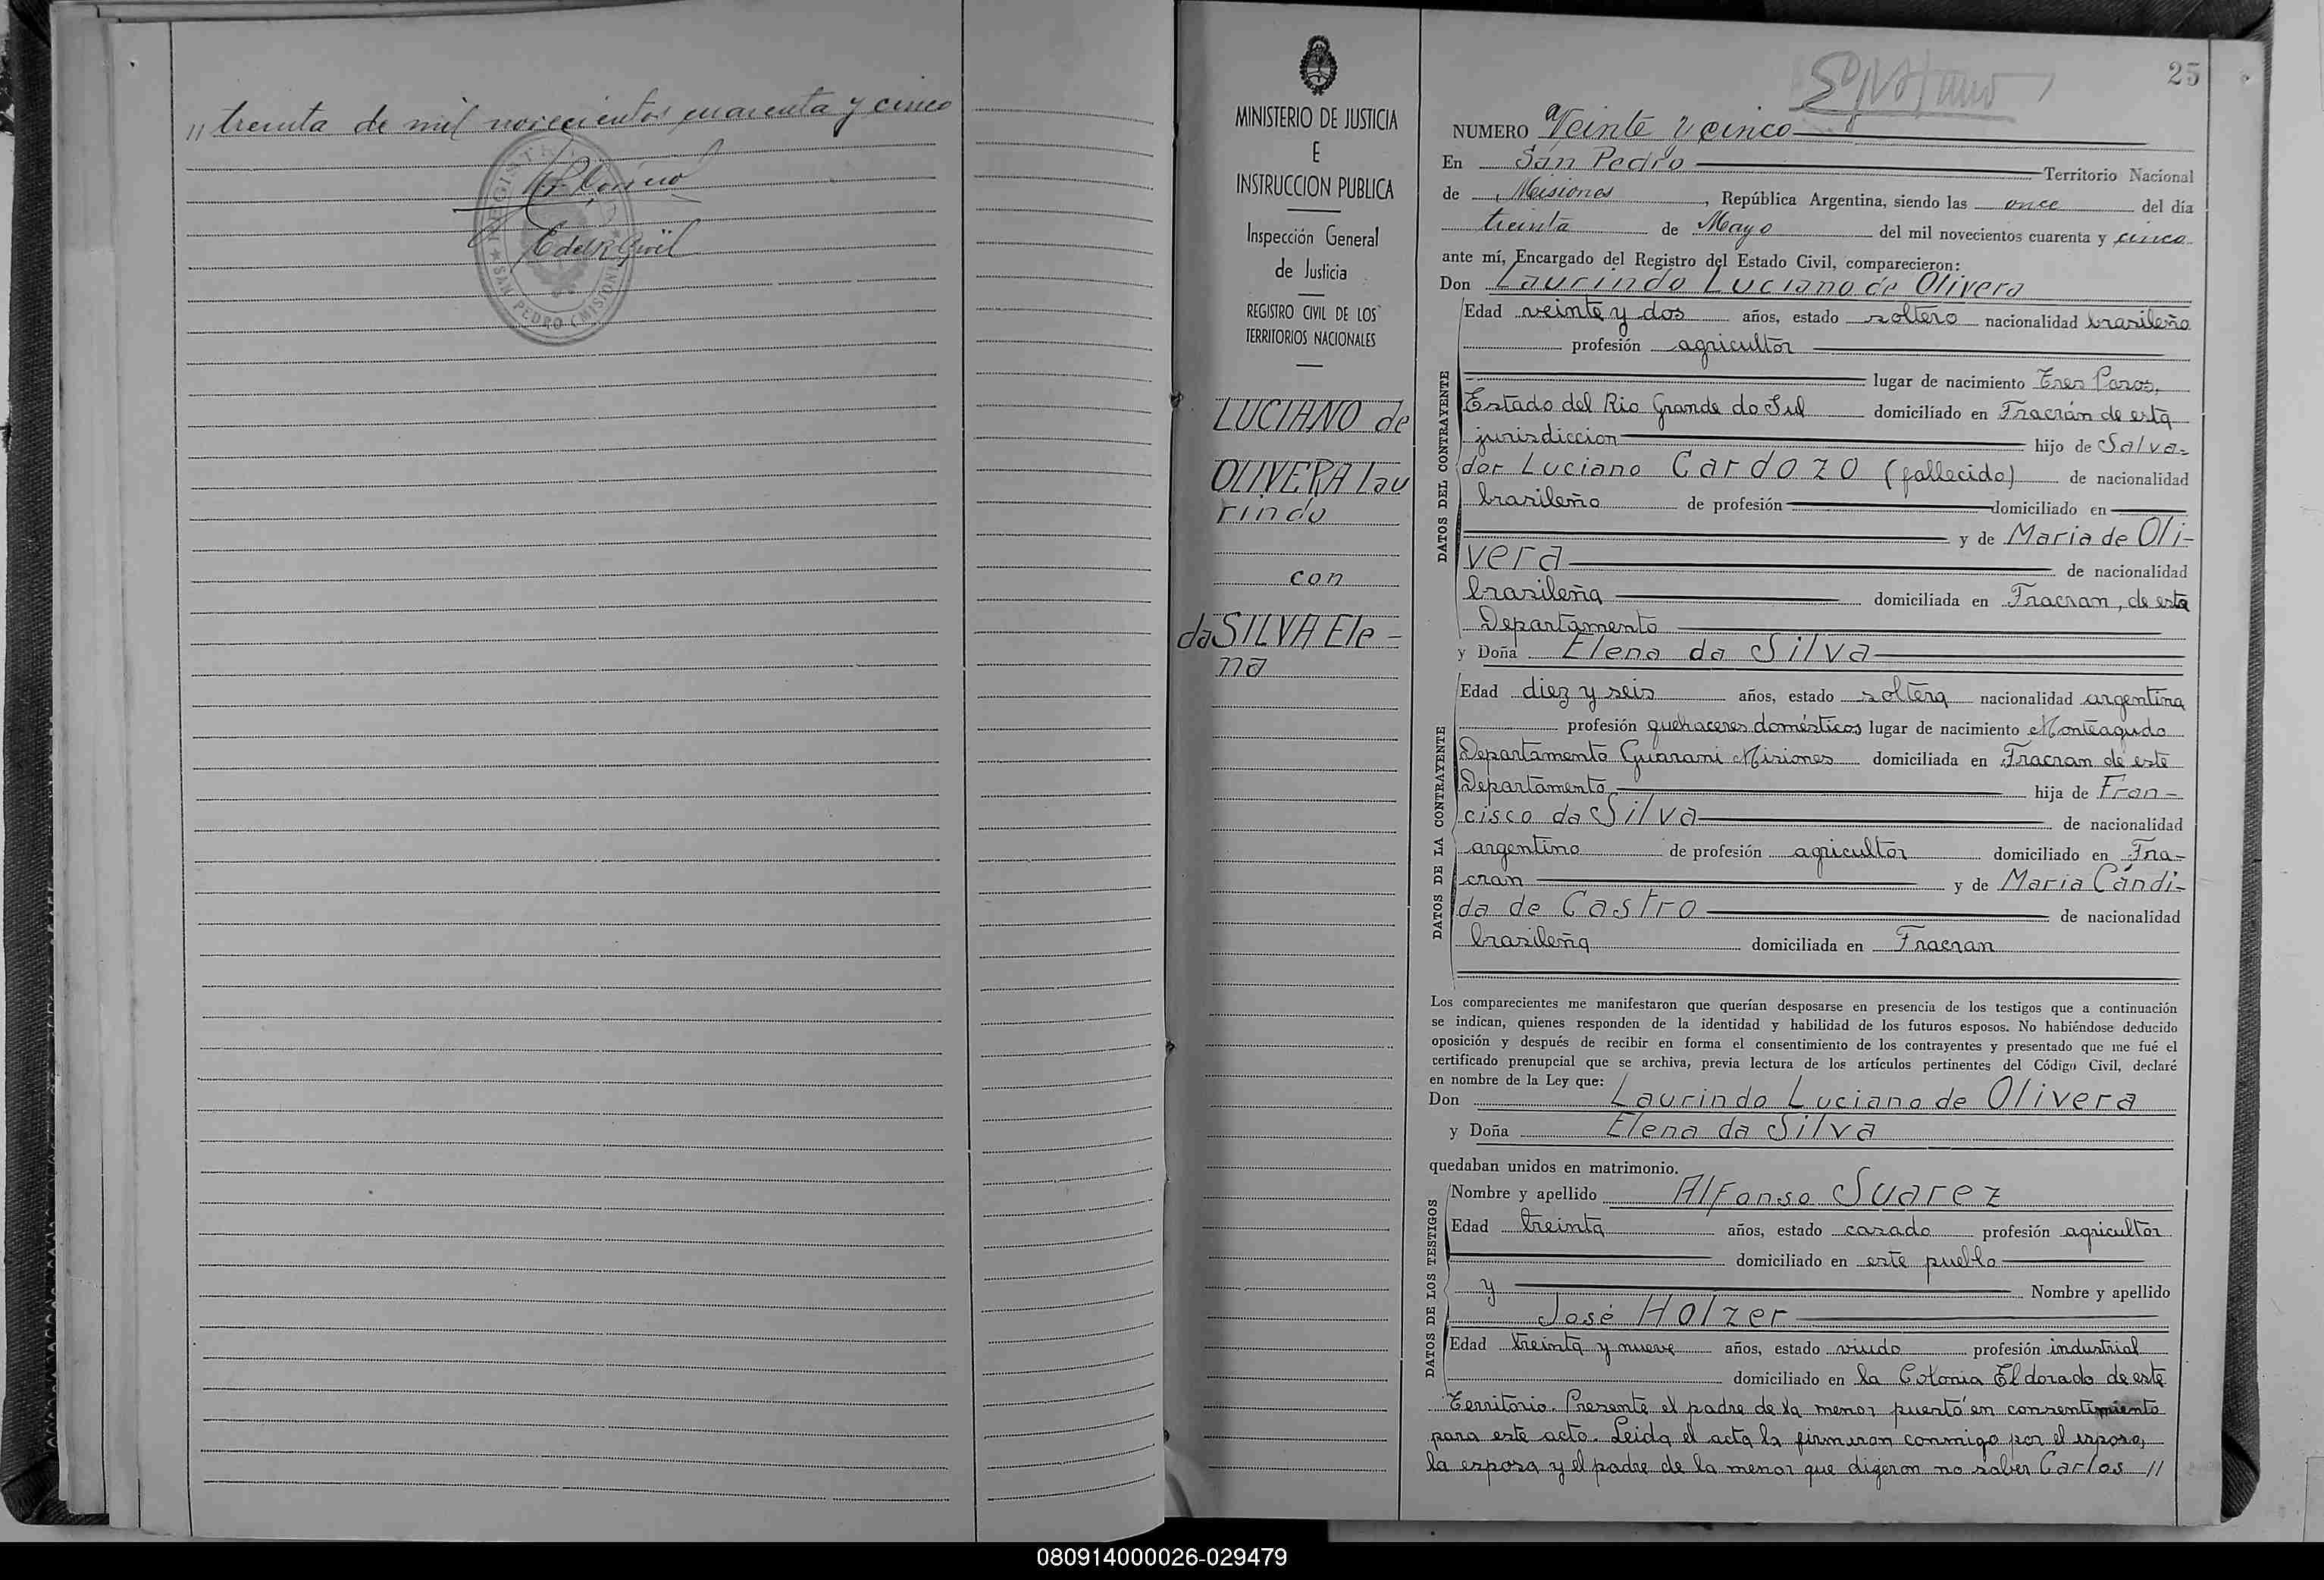 " treinta de mil novecientos cuarenta y cinco
E del R Civil
REGISTRO
SAN PEDRO (MISIONES)
MINISTERIO DE JUSTICIA
E
INSTRUCCION PUBLICA
Inspección General
de Justicia
REGISTRO CIVIL DE LOS
TERRITORIOS NACIONALES
LUCIANO de
OLIVERA Lau
rindo
con
da SILVA Ele-
na
25
NUMERO Veinte y cinco
En San Pedro Territorio Nacional
de Misiones, República Argentina, siendo las once del día
treinta de Mayo del mil novecientos cuarenta y cinco
ante mí, Encargado del Registro del Estado Civil, comparecieron:
Don Laurindo Luciano de Olivera
DATOS DEL CONTRAYENTE
Edad veinte y dos años, estado soltero nacionalidad brasileño
profesión agricultor
lugar de nacimiento Tres Pasos,
Estado del Rio Grande do Sul domiciliado en Fracrán de esta
jurisdiccion hijo de Salva-
dor Luciano Cardozo (fallecido) de nacionalidad
brasileño de profesión domiciliado en
y de Maria de Oli-
vera de nacionalidad
brasileña domiciliada en Fracran, de este
Departamento
y Doña Elena da Silva
DATOS DE LA CONTRAYENTE
Edad diez y seis años, estado soltera nacionalidad argentina
profesión quehaceres domésticos lugar de nacimiento Monteagudo
Departamento Guarani Misiones domiciliada en Fracran de este
Departamento hija de Fran-
cisco da Silva de nacionalidad
argentino de profesión agricultor domiciliado en Fra-
cran y de Maria Cándi-
da de Castro de nacionalidad
brasileña domiciliada en Fracran
Los comparecientes me manifestaron que querían desposarse en presencia de los testigos que a continuación
se indican, quienes responden de la identidad y habilidad de los futuros esposos. No habiéndose deducido
oposición y después de recibir en forma el consentimiento de los contrayentes y presentado que me fué el
certificado prenupcial que se archiva, previa lectura de los artículos pertinentes del Código Civil, declaré
en nombre de la Ley que:
Don Laurindo Luciano de Olivera
y Doña Elena da Silva
quedaban unidos en matrimonio.
DATOS DE LOS TESTIGOS
Nombre y apellido Alfonso Suarez
Edad treinta años, estado casado profesión agricultor
domiciliado en este pueblo
y Nombre y apellido
José Holzer
Edad treinta y nueve años, estado viudo profesión industrial
domiciliado en la Colonia Eldorado de este
Territorio. Presente el padre de la menor puestó en consentimiento
para este acto. Leida el acta la firmaron conmigo por el esposo,
la esposa y el padre de la menor que digeron no saber Carlos //
080914000026-029479